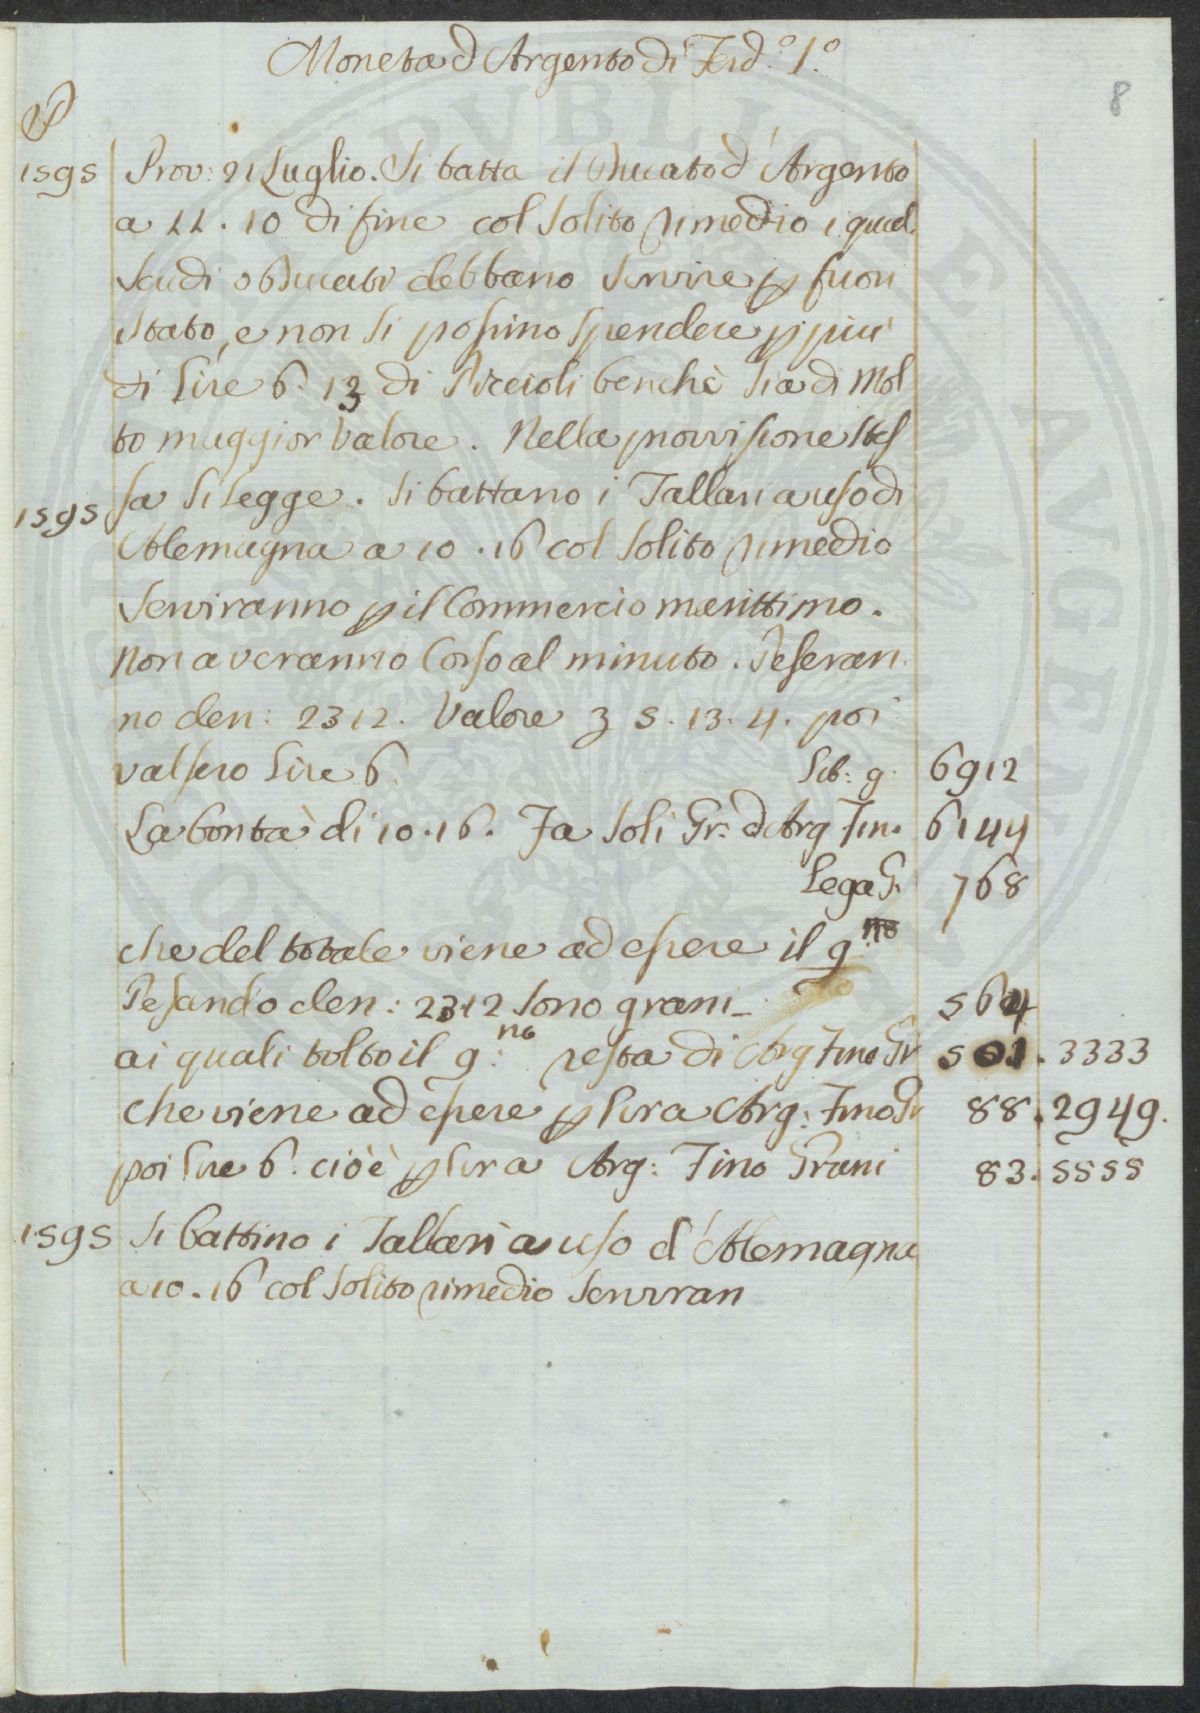 Moneta d'Argento di Ferd.º 1.º
8
1595 Prov: 21 Luglio. Si batta il Ducato d'Argento
a 11.10 di fine col solito rimedio i quali
Scudi o Ducati debbano servire p fuori
stato, e non si possino spendere p più
di Lire 6. 13 di Piccioli benchè sia di Mol
to maggior Valore. Nella provvisione stes
1595 sa si legge. Si battano i Tallari a uso di
Alemagna a 10.16 col solito rimedio
Serviranno p il Commercio marittimo.
Non averanno Corso al minuto. Peseran
no den: 23 12. Valore 3 5.13.4. poi
valsero Lire 6. Lib: g. 6912
La bontà di 10.16. Fa soli Gr: d'Arg Fin. 6144
Lega G. 768
che del totale viene ad essere il 9.no
Pesando den: 23.12 sono grani 564
ai quali tolto il 9:no resta di Arg Fino Gr 501.3333
che viene ad essere p lira Arg: Fino Gr 88.2949.
poi Lire 6. cioè p lira Arg: Fino Grani 83.5555
1595 Si battino i Tallari a uso d'Alemagna
a 10.16 col solito rimedio Serviran